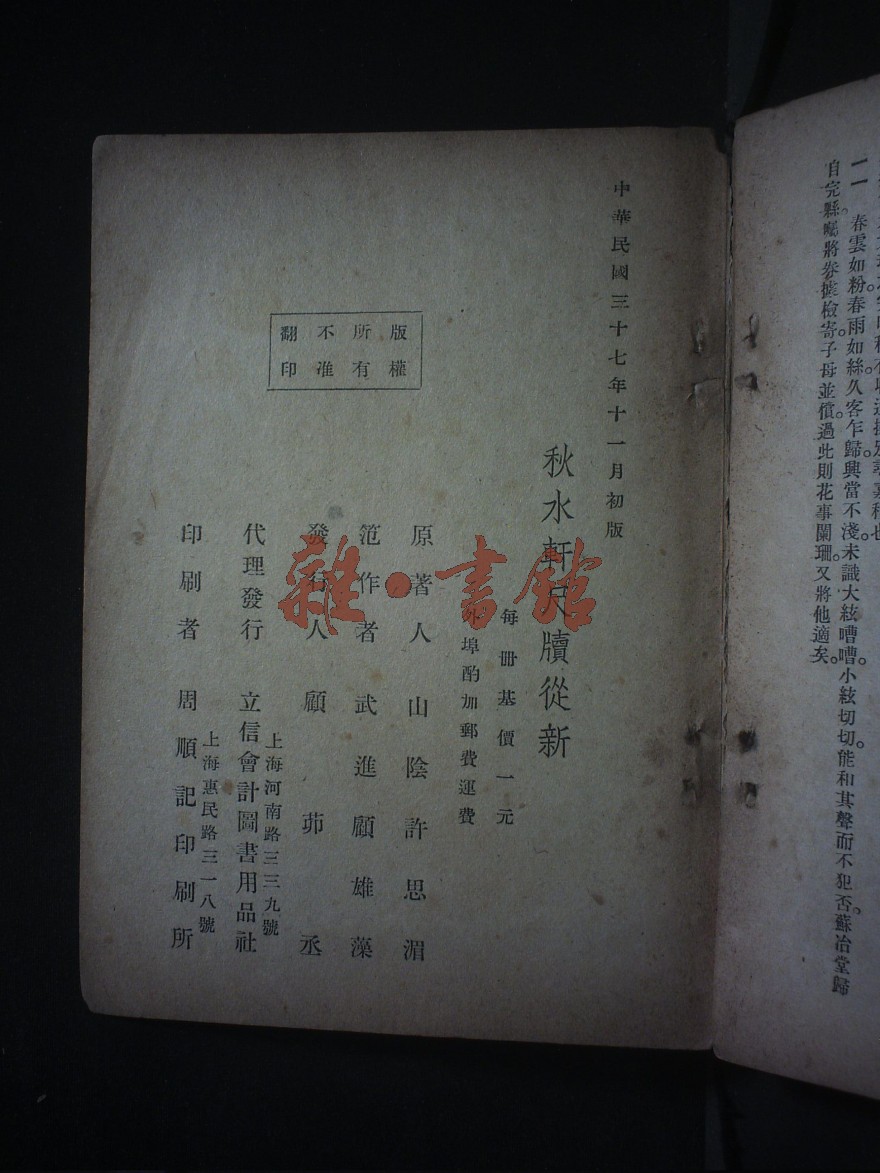 春雲如粉春雨如絲。久客乍歸興當不淺。未識大絃嘈嘈。小絃切切。能和其聲而不犯否。蘇冶堂歸
自完縣。囑將券據檢寄子母並償。過此則花事闌珊。又將他適矣。
中華民國三十七年十一月初版
秋水軒尺牘從新
每冊基價一元
外埠酌加郵費運費
原著人 山陰許思湄
範作者 武進顧雄藻
發行人 顧茆丞
代理發行 立信會計圖書用品社
上海河南路三三九號
印刷者 周順記印刷所
上海惠民路三一八號
版權所有
不准翻印
雜·書館